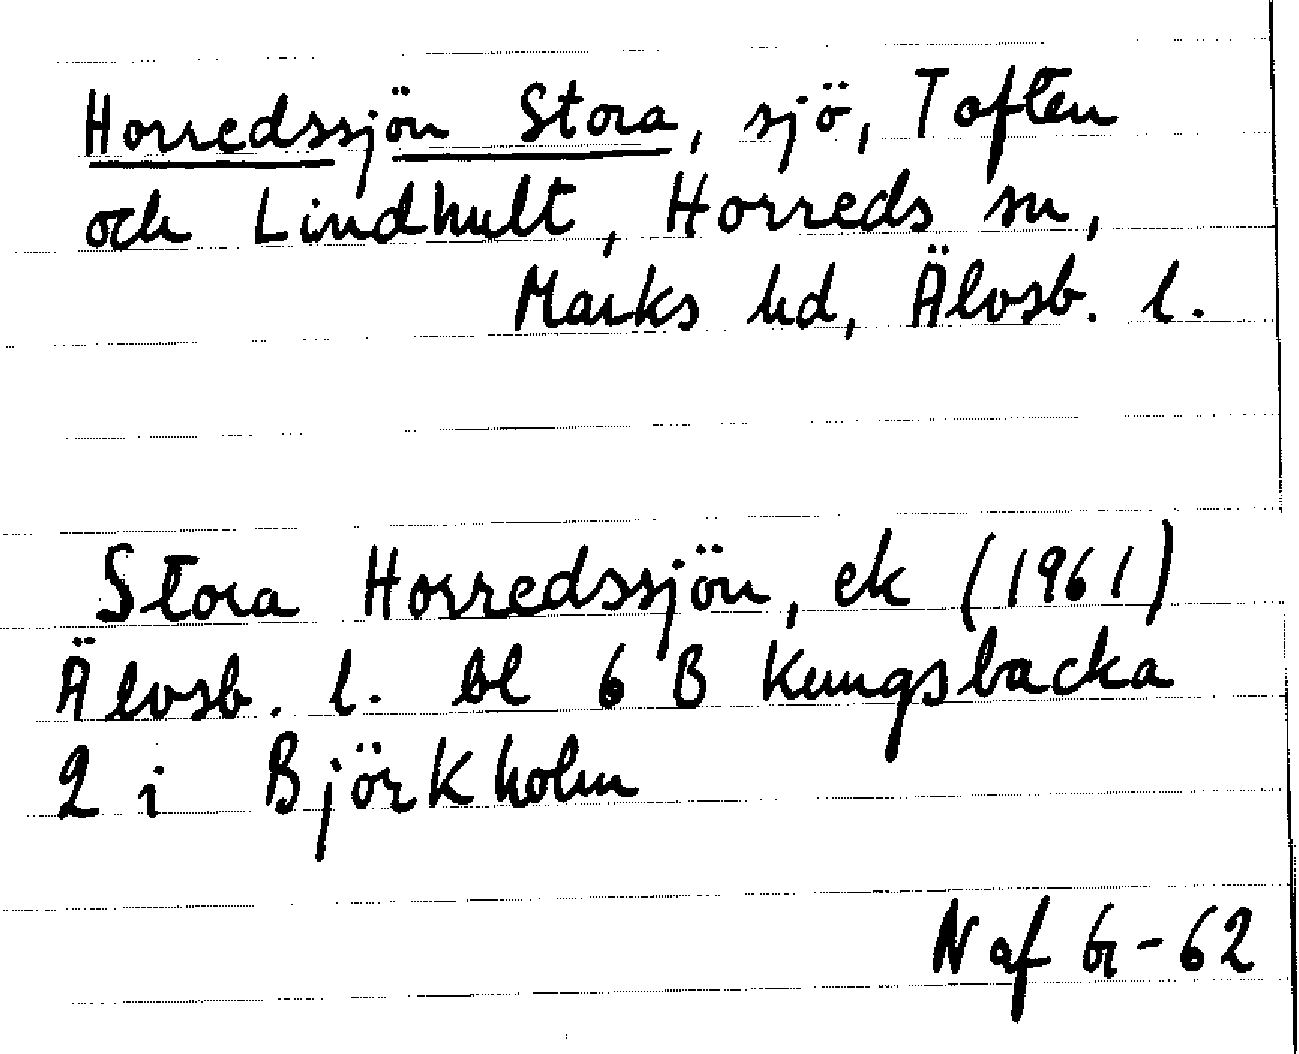 Horredssjön Stora, sjö, Toften
och Lindhult, Horreds sn,
Marks hd, Älvsb. l.
Stora Horredssjön, ek (1961)
Älvsb. l. bl 6 B Kungsbacka
2 i Björkholm
N af Gr-62